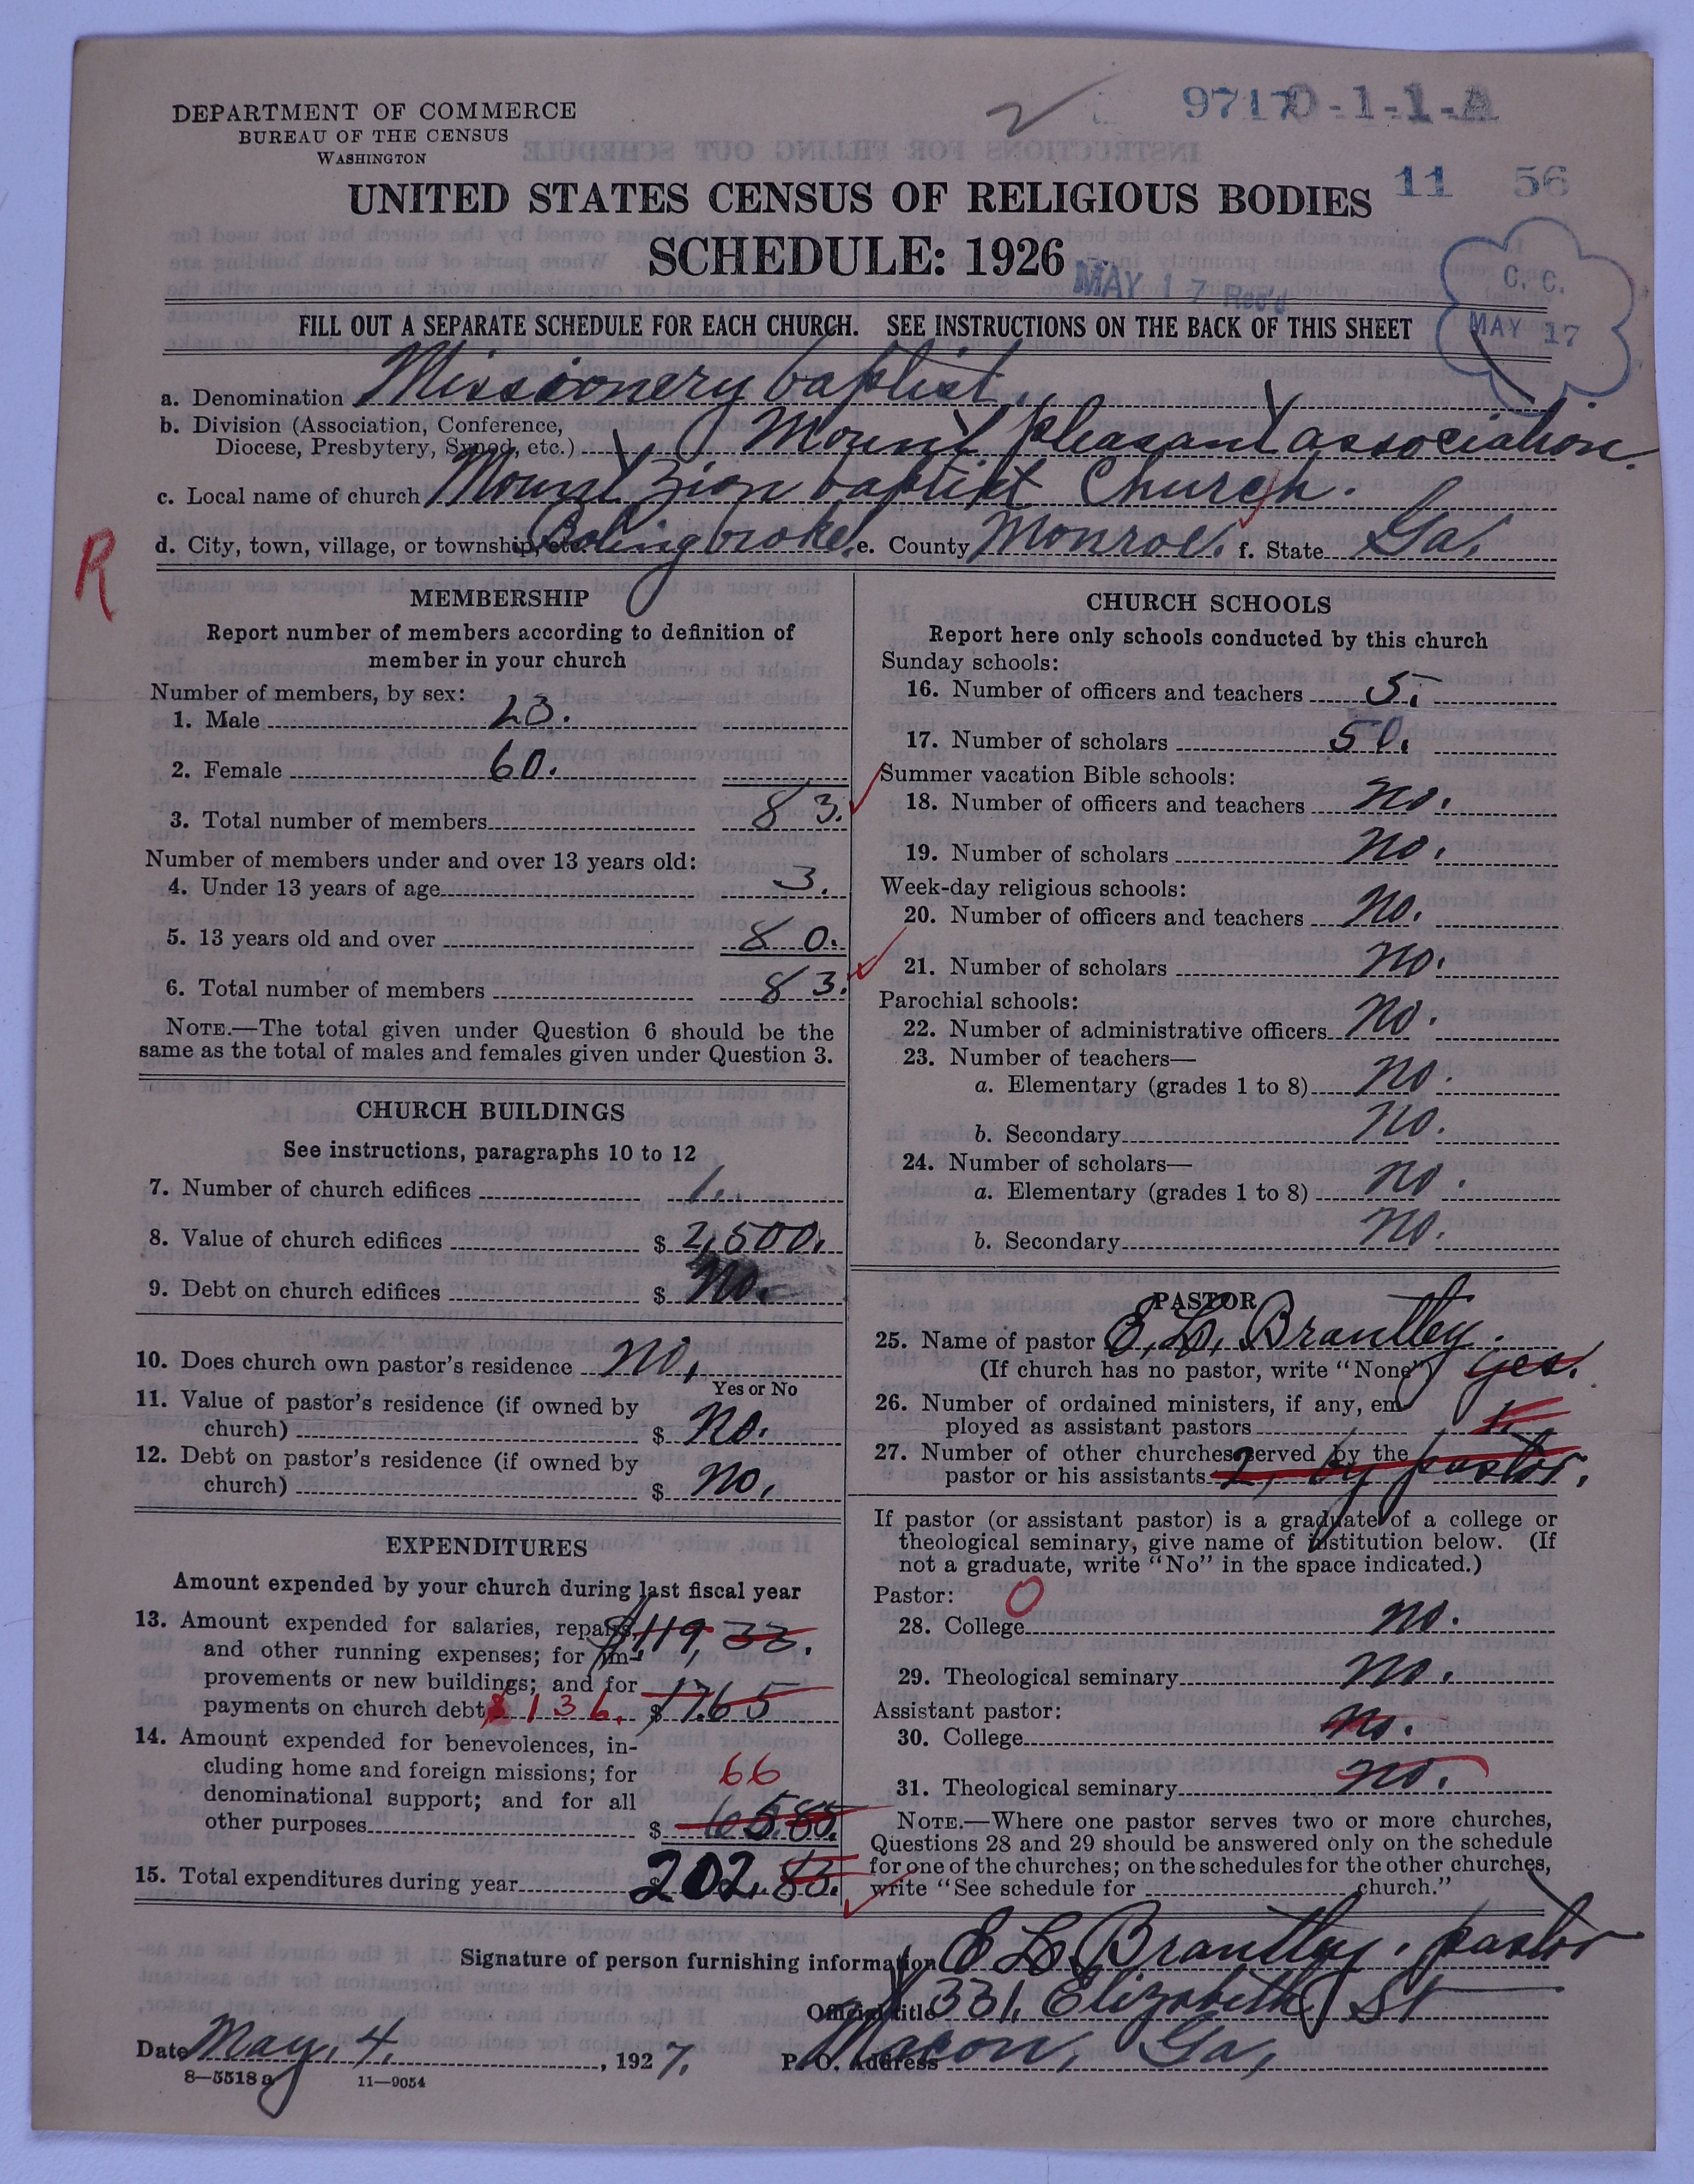 DEPARTMENT OF COMMERCE
BUREAU OF THE CENSUS
WASHINGTON
9717 0-1-1-A
11 56
UNITED STATES CENSUS OF RELIGIOUS BODIES
SCHEDULE: 1926
MAY 17 Rec'd
C. C.
MAY 17
FILL OUT A SEPARATE SCHEDULE FOR EACH CHURCH. SEE INSTRUCTIONS ON THE BACK OF THIS SHEET
a. Denomination Missionery baptist.
b. Division (Association, Conference,
Diocese, Presbytery, Synod, etc.) Mount pleasant association.
c. Local name of church Mount Zion baptist Church.
d. City, town, village, or township, etc. Bolingbroke. e. County Monroe. f. State Ga.
R
MEMBERSHIP
Report number of members according to definition of
member in your church
Number of members, by sex:
1. Male 23.
2. Female 60.
3. Total number of members 83.
Number of members under and over 13 years old:
4. Under 13 years of age 3.
5. 13 years old and over 80.
6. Total number of members 83.
NOTE.—The total given under Question 6 should be the
same as the total of males and females given under Question 3.
CHURCH BUILDINGS
See instructions, paragraphs 10 to 12
7. Number of church edifices 1.
8. Value of church edifices $ 2,500.
9. Debt on church edifices $ no.
10. Does church own pastor's residence no.
Yes or No
11. Value of pastor's residence (if owned by
church) $ no.
12. Debt on pastor's residence (if owned by
church) $ no.
EXPENDITURES
Amount expended by your church during last fiscal year
13. Amount expended for salaries, repairs, $119 33.
and other running expenses; for im-
provements or new buildings; and for
payments on church debt $136. $ 17.65
14. Amount expended for benevolences, in-
cluding home and foreign missions; for 66
denominational support; and for all
other purposes $ 65.85.
15. Total expenditures during year 202.83.
CHURCH SCHOOLS
Report here only schools conducted by this church
Sunday schools:
16. Number of officers and teachers 5.
17. Number of scholars 50.
Summer vacation Bible schools:
18. Number of officers and teachers no.
19. Number of scholars no.
Week-day religious schools:
20. Number of officers and teachers no.
21. Number of scholars no.
Parochial schools:
22. Number of administrative officers no.
23. Number of teachers—
a. Elementary (grades 1 to 8) no.
b. Secondary no.
24. Number of scholars—
a. Elementary (grades 1 to 8) no.
b. Secondary no.
PASTOR
25. Name of pastor E. L. Brantley.
(If church has no pastor, write "None") yes.
26. Number of ordained ministers, if any, em-
ployed as assistant pastors 1.
27. Number of other churches served by the
pastor or his assistants 2, by pastor.
If pastor (or assistant pastor) is a graduate of a college or
theological seminary, give name of institution below. (If
not a graduate, write "No" in the space indicated.)
Pastor: 0
28. College no.
29. Theological seminary no.
Assistant pastor:
30. College no.
31. Theological seminary no.
NOTE.—Where one pastor serves two or more churches,
Questions 28 and 29 should be answered only on the schedule
for one of the churches; on the schedules for the other churches,
write "See schedule for church."
Signature of person furnishing information E L Brantley. pastor
Official title 331, Elizabeth St
Date May. 4. , 1927. P. O. Address Macon, Ga,
8—5518 a 11—9054